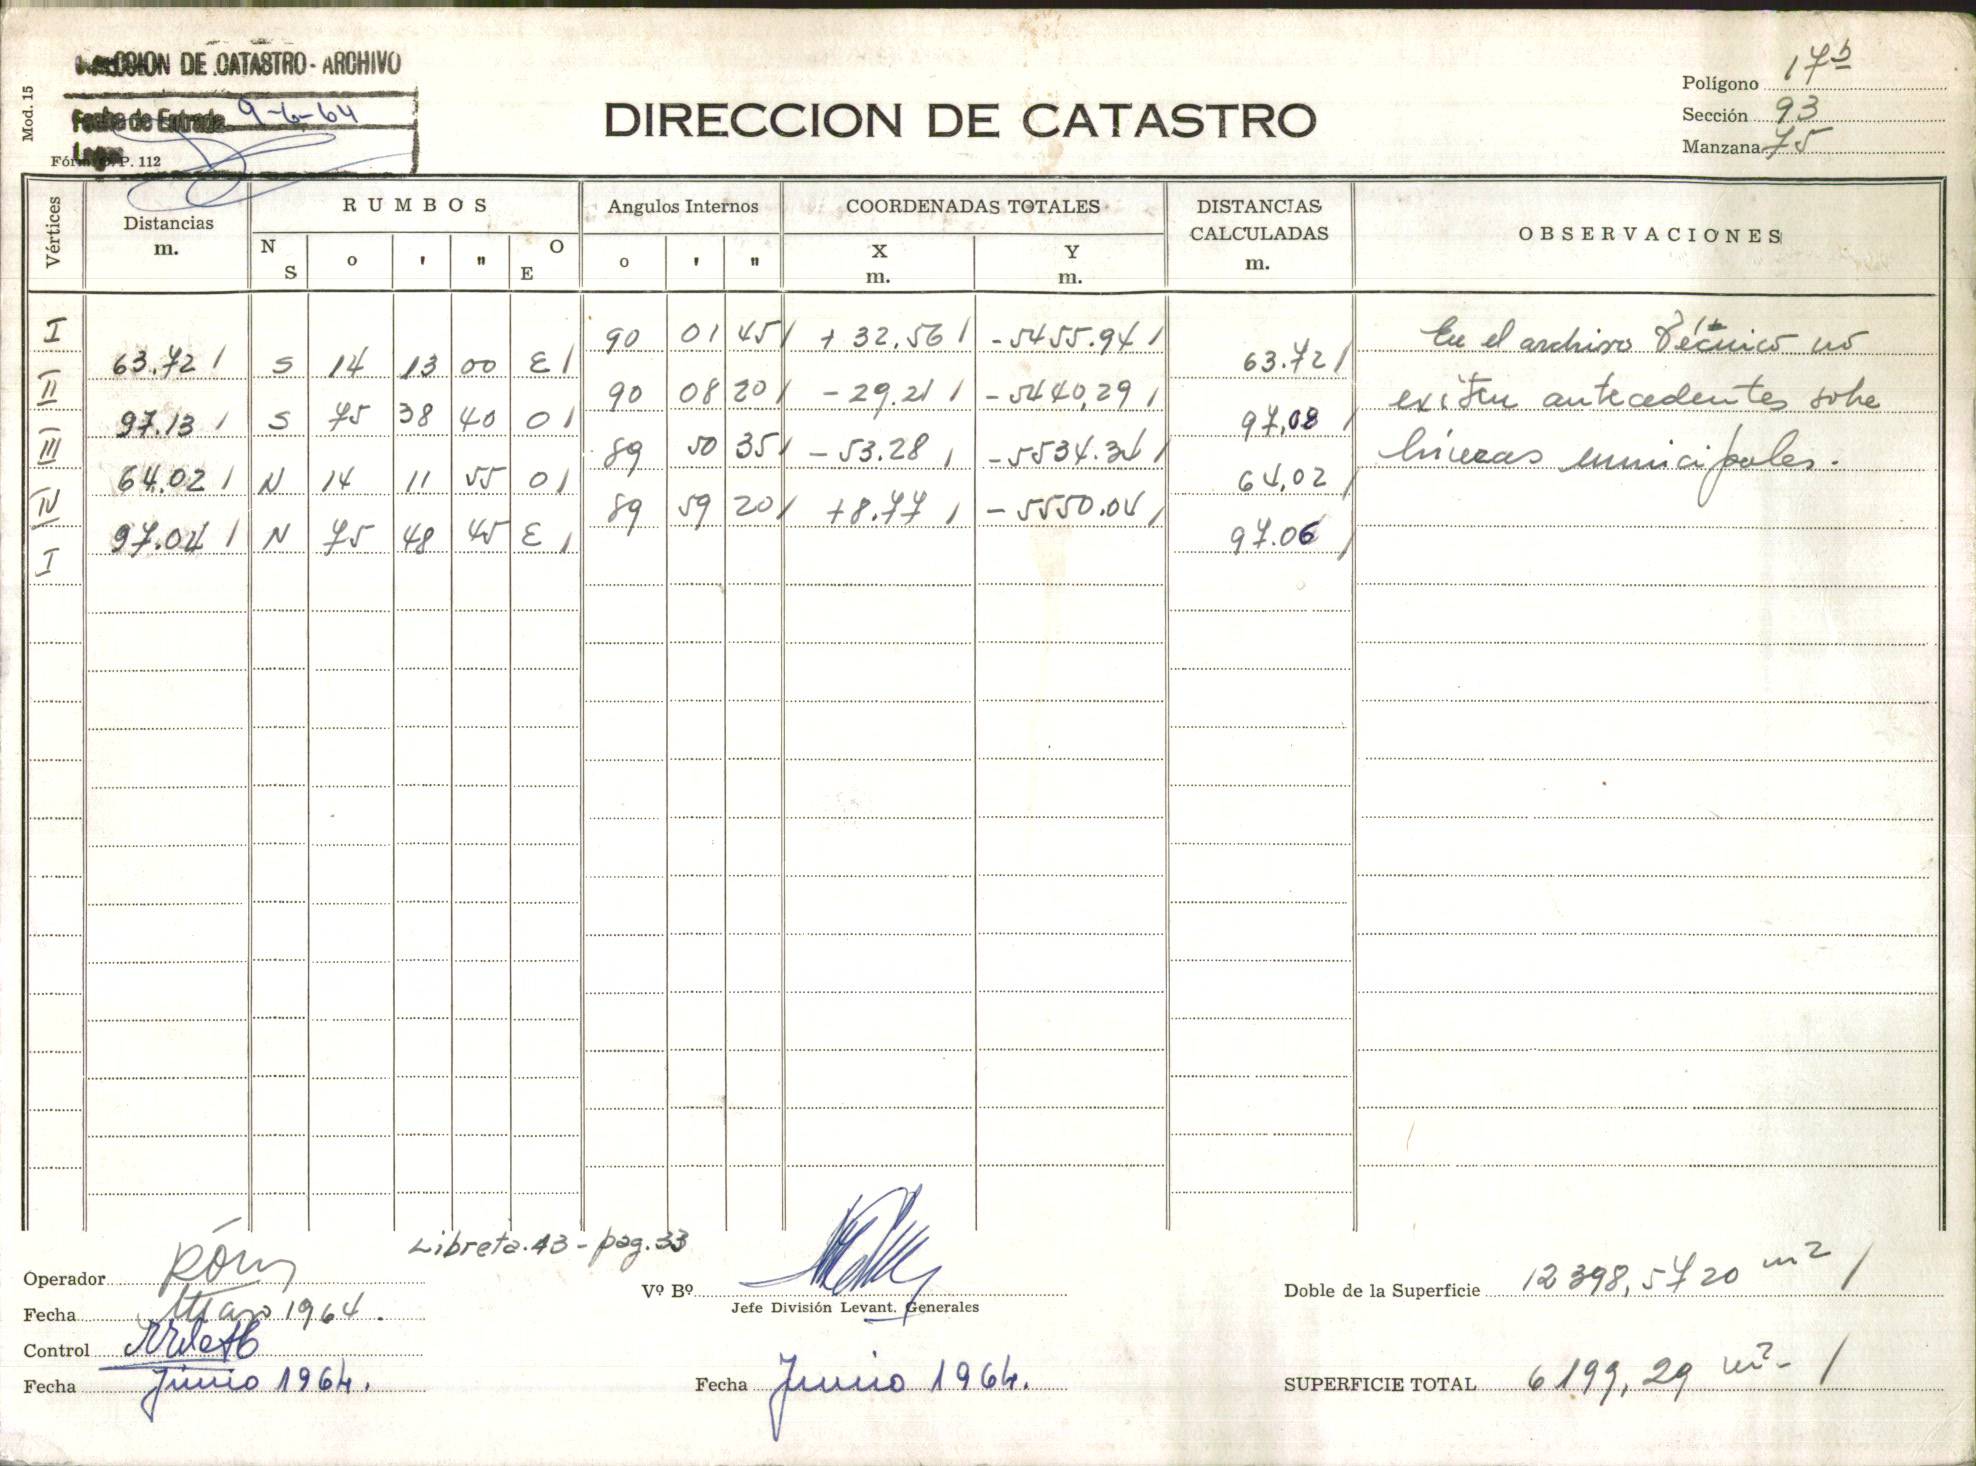 DIRECCION DE CATASTRO - ARCHIVO
Fecha de Entrada 9-6-64
Mod. 15
Fórm. D. P. 112
DIRECCION DE CATASTRO
Polígono 17b
Sección 93
Manzana 75
Vértices
Distancias
m.
RUMBOS
N S
o ' "
O E
Angulos Internos
o ' "
COORDENADAS TOTALES
X
m.
Y
m.
DISTANCIAS
CALCULADAS
m.
OBSERVACIONES
I 90 01 45/ +32.56/ -5455.94/
63.72/ S 14 13 00 E/ 63.72/
II 90 08 20/ -29.21/ -5440,29/
97.13/ S 75 38 40 O/ 97,08/
III 89 50 35/ -53.28/ -5534.34/
64.02/ N 14 11 55 O/ 64,02/
IV 89 59 20/ +8.77/ -5550.04/
97.04/ N 75 48 45 E/ 97.06/
I
En el archivo Técnico no
existen antecedentes sobre
líneas municipales.
Libreta.43-pag.33
Operador
Fecha Mayo 1964.
Control
Fecha Junio 1964.
Vº Bº
Jefe División Levant. Generales
Fecha Junio 1964.
Doble de la Superficie 12398,5720 m2/
SUPERFICIE TOTAL 6199,29 m2-/